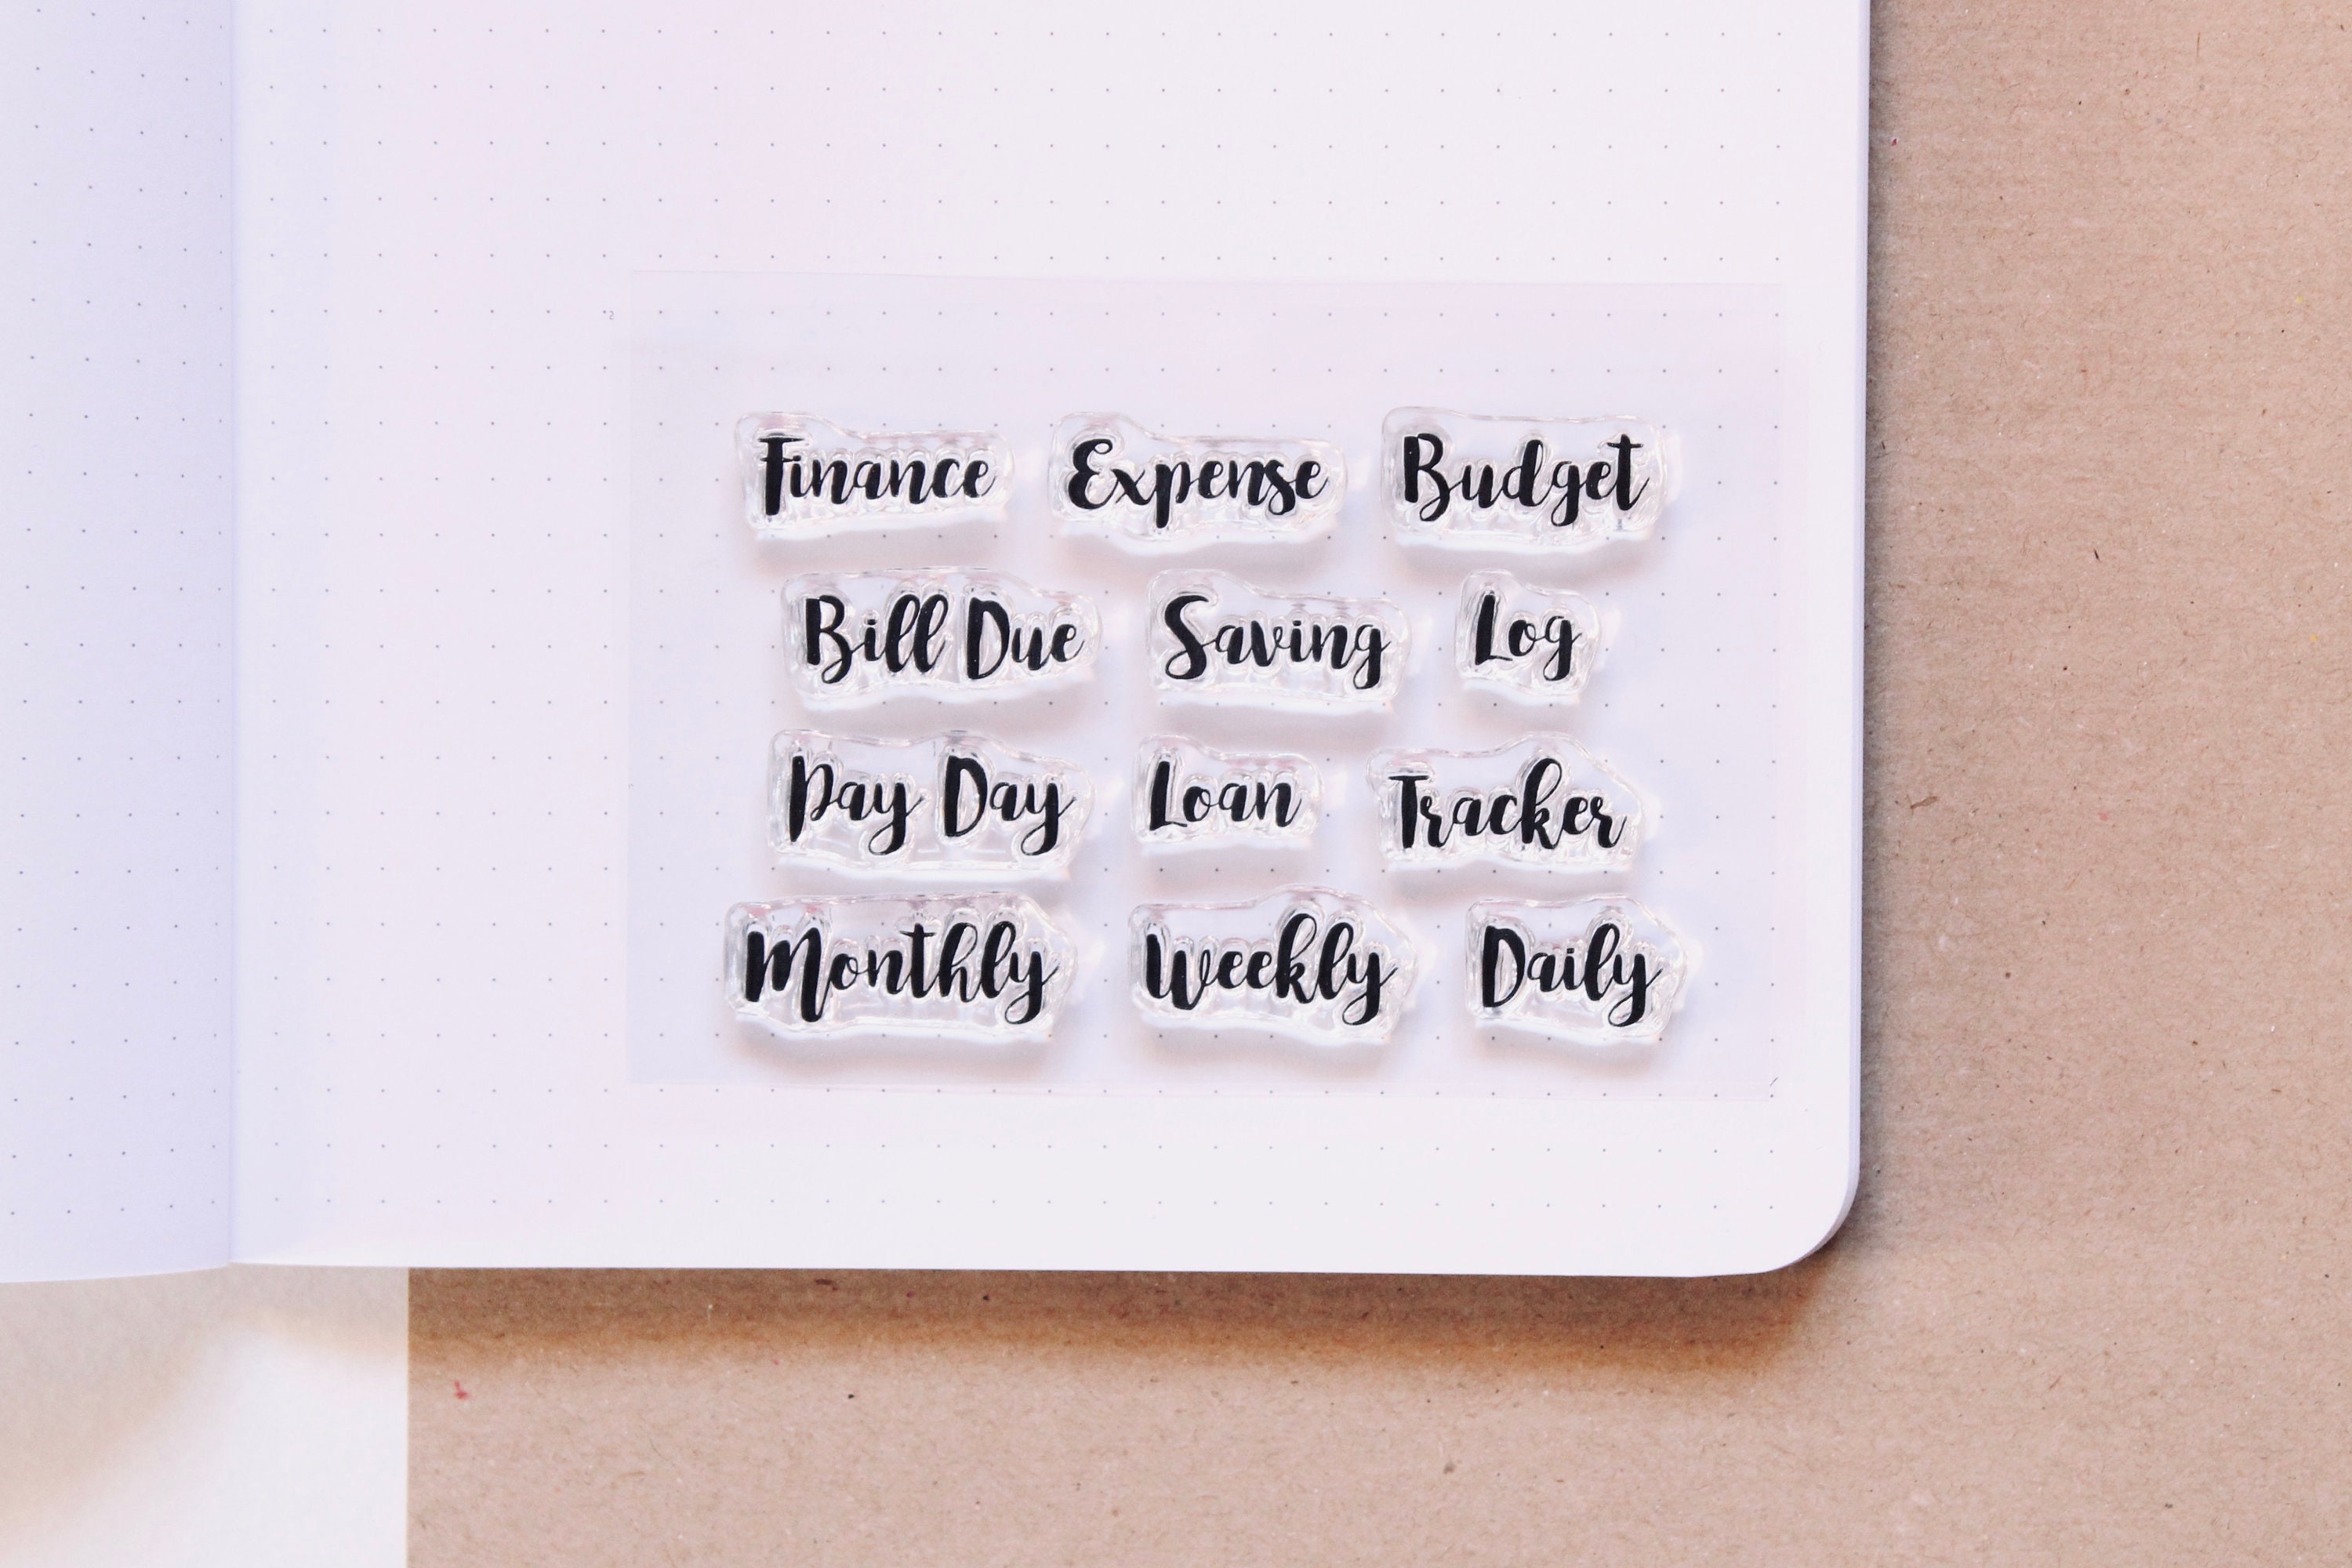 Finance Expense Budget
Bill Due Saving Log
Pay Day Loan Tracker
Monthly Weekly Daily